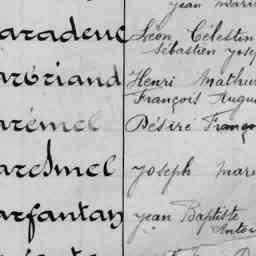 Jean Marie
aradeuc Léon Célestin
Sébastien Josep
arbriand Henri Mathur
François Augus
arémel Désiré Françoi
aresmel Joseph Mari
arfantan Jean Baptiste
Antoi